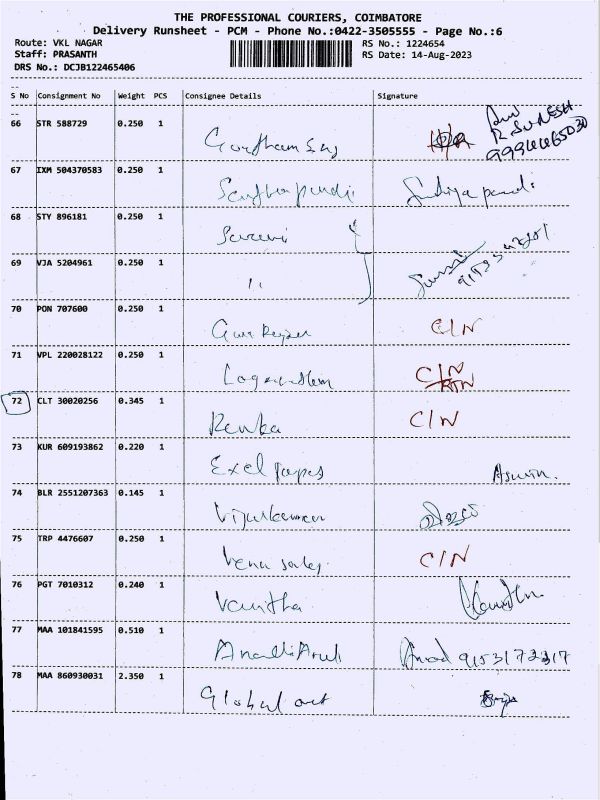 THE PROFESSIONAL COURIERS, COIMBATORE
Delivery Runsheet - PCM - Phone No.:0422-3505555 - Page No.:6
Route: VKL NAGAR RS No.: 1224654
Staff: PRASANTH RS Date: 14-Aug-2023
DRS No.: DCJB122465406
--
S No Consignment No Weight PCS Consignee Details Signature
--
66 STR 588729 0.250 1
R SURESH
67 IXM 504370583 0.250 1
68 STY 896181 0.250 1
69 VJA 5204961 0.250 1 "
70 PON 707600 0.250 1 C/N
71 VPL 220028122 0.250 1 C/N
72 CLT 30020256 0.345 1 Renka C/N
73 KUR 609193862 0.220 1 Aswin.
74 BLR 2551207363 0.145 1 Vijaykumar
75 TRP 4476607 0.250 1 Venu sales C/N
76 PGT 7010312 0.240 1 Vanitha
77 MAA 101841595 0.510 1
78 MAA 860930031 2.350 1 Global art